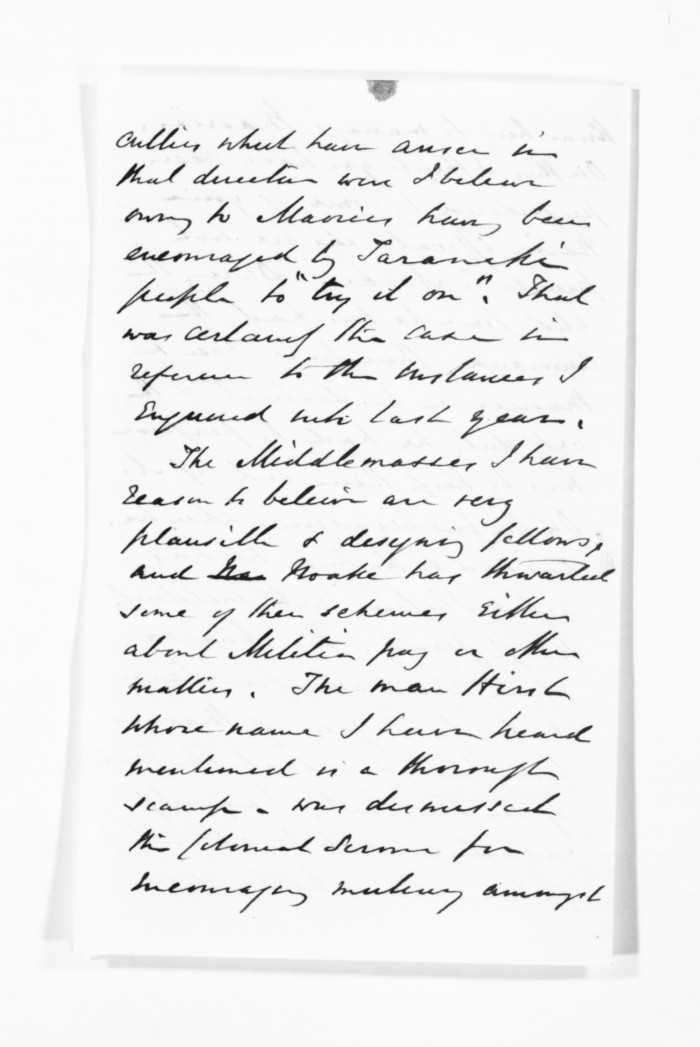 culties which have arisen in
that direction were I believe
owing to Maories having been
encouraged by Taranaki
people to "try it on". That
was certainly the case in
reference to the instances I
Enquired into last year.
The Middlemasses I have
reason to beleive are very
plausible & designing fellows,
and Noake has thwarted
some of their schemes Either
about Militia pay or other
matters. The man Hirst
whose name I have heard
mentioned is a thorough
scamp - was dismissed
the Colonial Service for
encouraging mutiny amongst